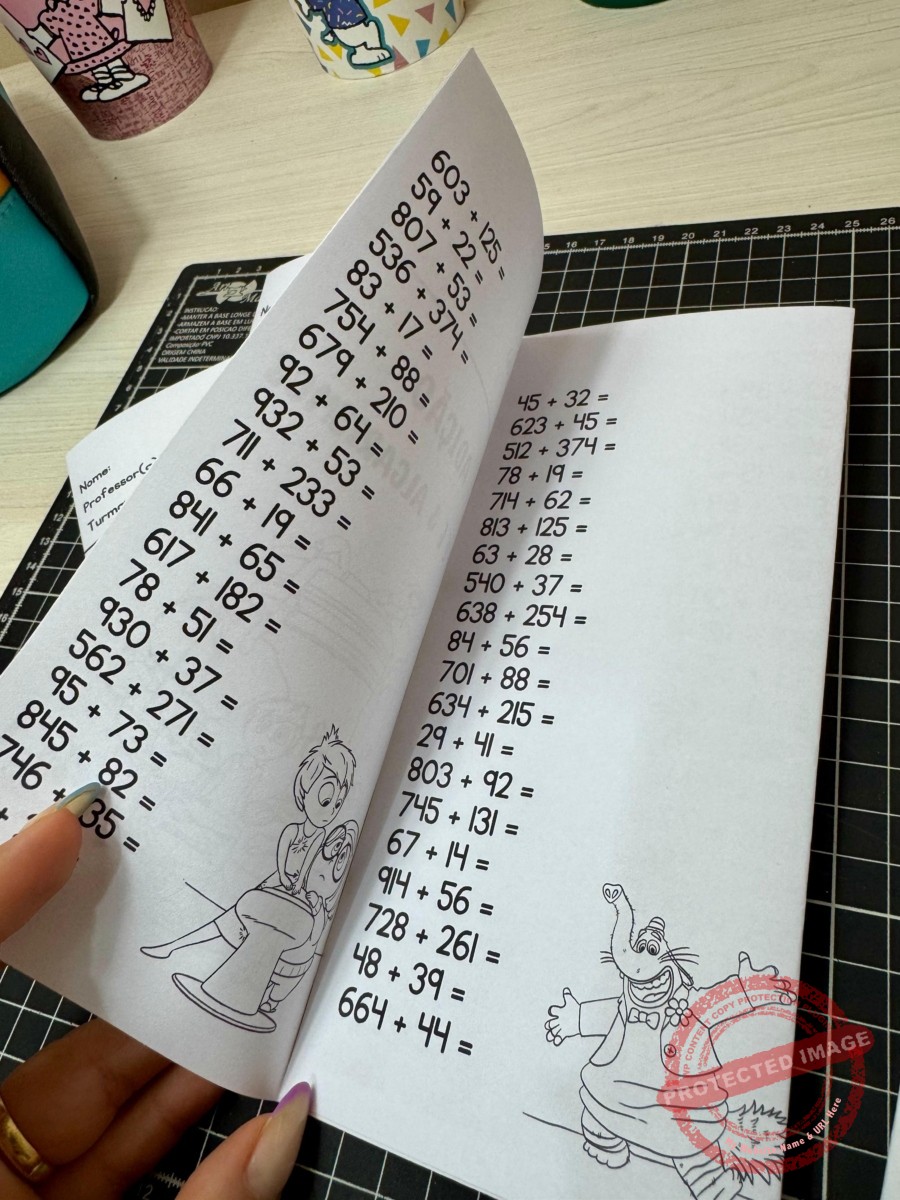 INSTRUCAO:
-MANTER A BASE LONGE
-ARMAZEM A BASE EM
-CORTAR EM POSICAO
IMPORTADO CNPJ 10.337.
Composição PVC
ORIGEM CHINA
VALIDADE INDETERMIN
Nome:
Professor(
603 + 125 =
59 + 22 =
807 + 53 =
536 + 374 =
83 + 17 =
754 + 88 =
679 + 210 =
92 + 64 =
932 + 53 =
711 + 233 =
66 + 19 =
841 + 65 =
617 + 182 =
78 + 51 =
930 + 37 =
562 + 271 =
95 + 73 =
845 + 82 =
746 + 35 =
45 + 32 =
623 + 45 =
512 + 374 =
78 + 19 =
714 + 62 =
813 + 125 =
63 + 28 =
540 + 37 =
638 + 254 =
84 + 56 =
701 + 88 =
634 + 215 =
29 + 41 =
803 + 92 =
745 + 131 =
67 + 14 =
914 + 56 =
728 + 261 =
48 + 39 =
664 + 44 =
15 16 17 18 19 20 21 22 23 24 25 26
WP CONTENT COPY PROTECT
PROTECTED IMAGE
Name & URL Here